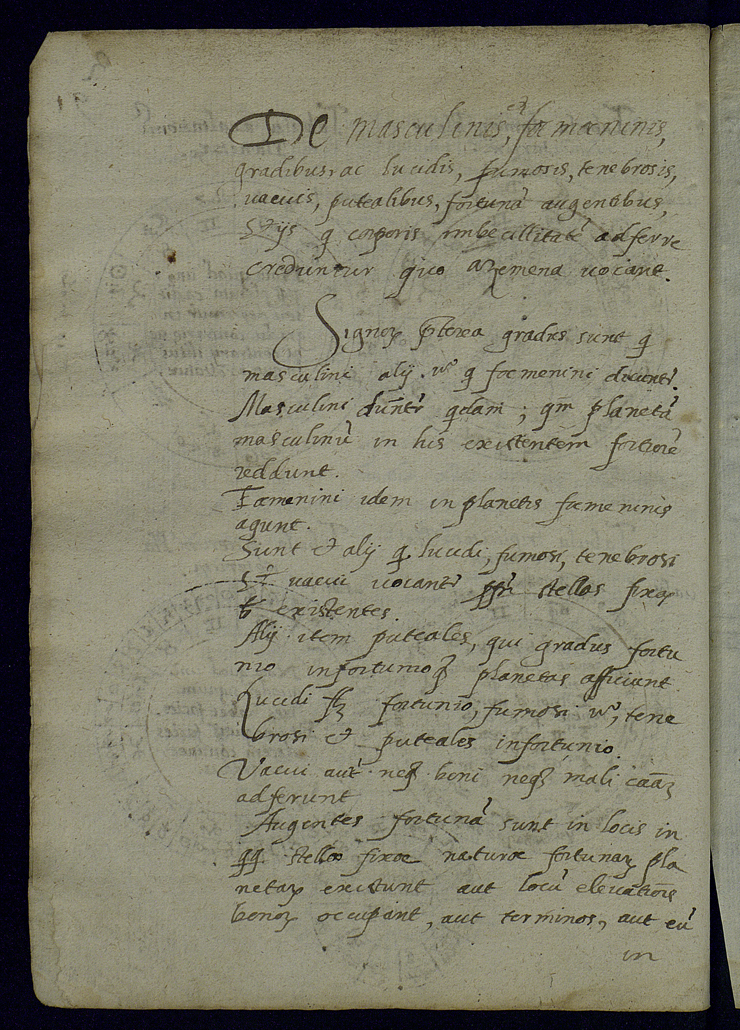 De masculinis, et fœmæninis,
gradibus, ac lucidis, fumosis, tenebrosis,
vacuis, putealibus, fortunā augentibus,
et ijs q̄ corporis imbecillitatē adferre
creduntur quo azemena vocant.
Signoꝝ p̄terea gradus sunt q̄
masculini alij vº q̄ fœmenini dicunt̄.
Masculini dūnt̄ qdam; qm planetā
masculinū in his existentem fortiorē
reddunt.
Fœmenini idem in planetis fœmeninis
agunt.
Sunt et alij q̄ lucidi, fumosi, tenebrosi
vacui vocant̄ stellas fixaꝝ
existentes.
Alij item puteales, qui gradus fortu
nio infortunioqꝫ planetas afficiunt
Lucidi fortunio, fumosi vº, tene
brosi et puteales infortunio.
Vacui aut neqꝫ boni neqꝫ mali
adferunt
Augentes fortunā sunt in locis in
qq stellæ fixæ naturæ fortunaꝝ pla
netaꝝ existunt aut locū elevationis
bonoꝝ occupant, aut terminos, aut eū
in